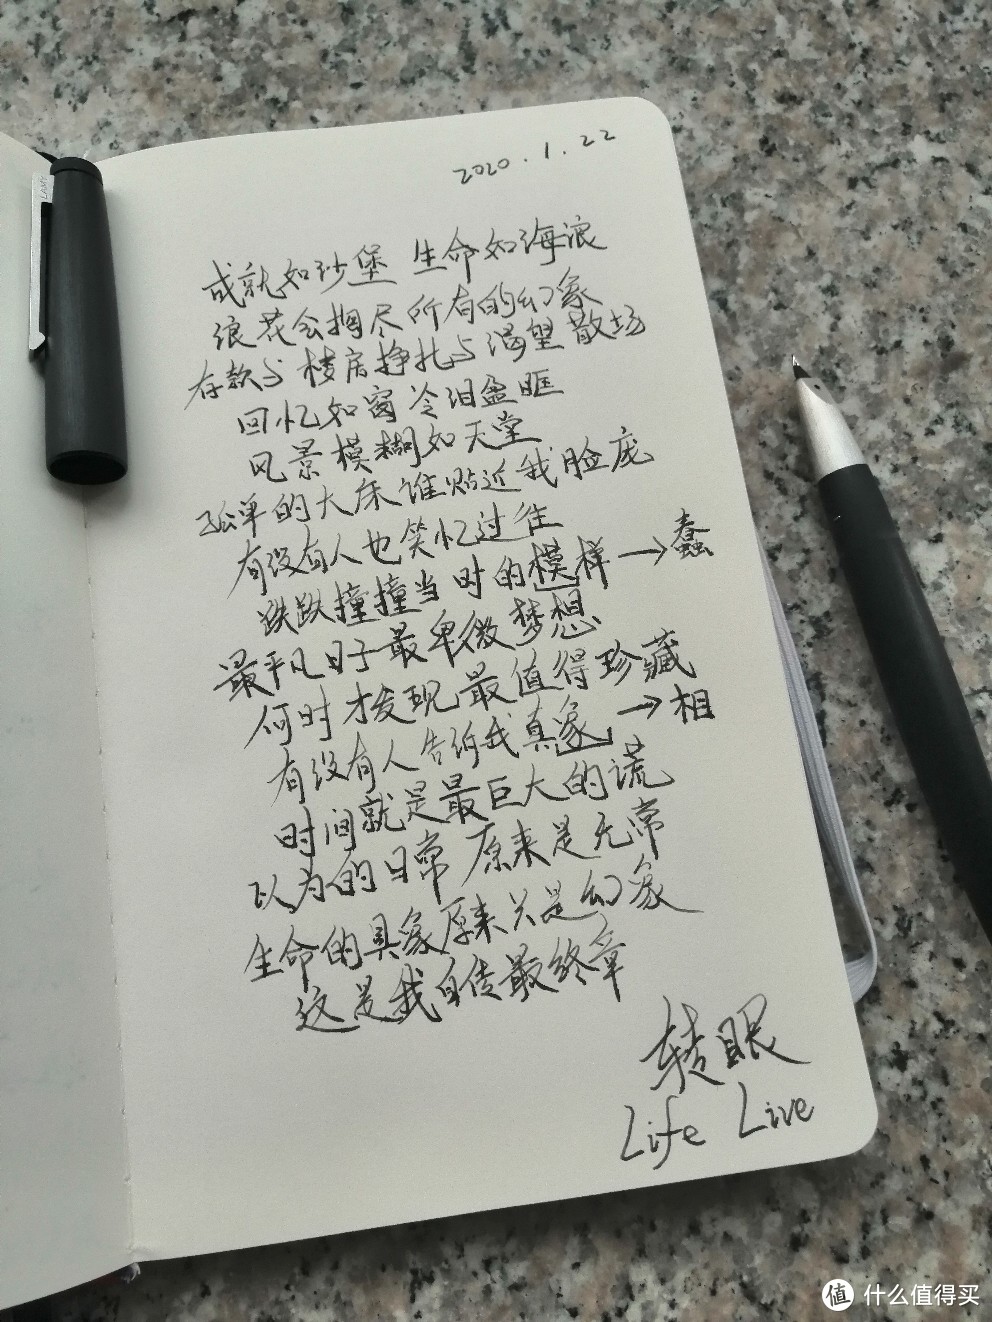 2020.1.22
成就如沙堡 生命如海浪
浪花会掏尽所有的幻象
存款与楼房挣扎与渴望散场
回忆如窗冷泪盈眶
风景模糊如天堂
孤单的大床谁贴近我脸庞
有没有人也笑忆过往
跌跌撞撞当时的模样→蠢
最平凡日子最卑微梦想
何时才发现最值得珍藏
有没有人告诉我真象→相
时间就是最巨大的谎
以为的日常 原来是无常
生命的具象原来只是幻象
这是我自传最终章
转眼
Life Live
LAMY
值 什么值得买